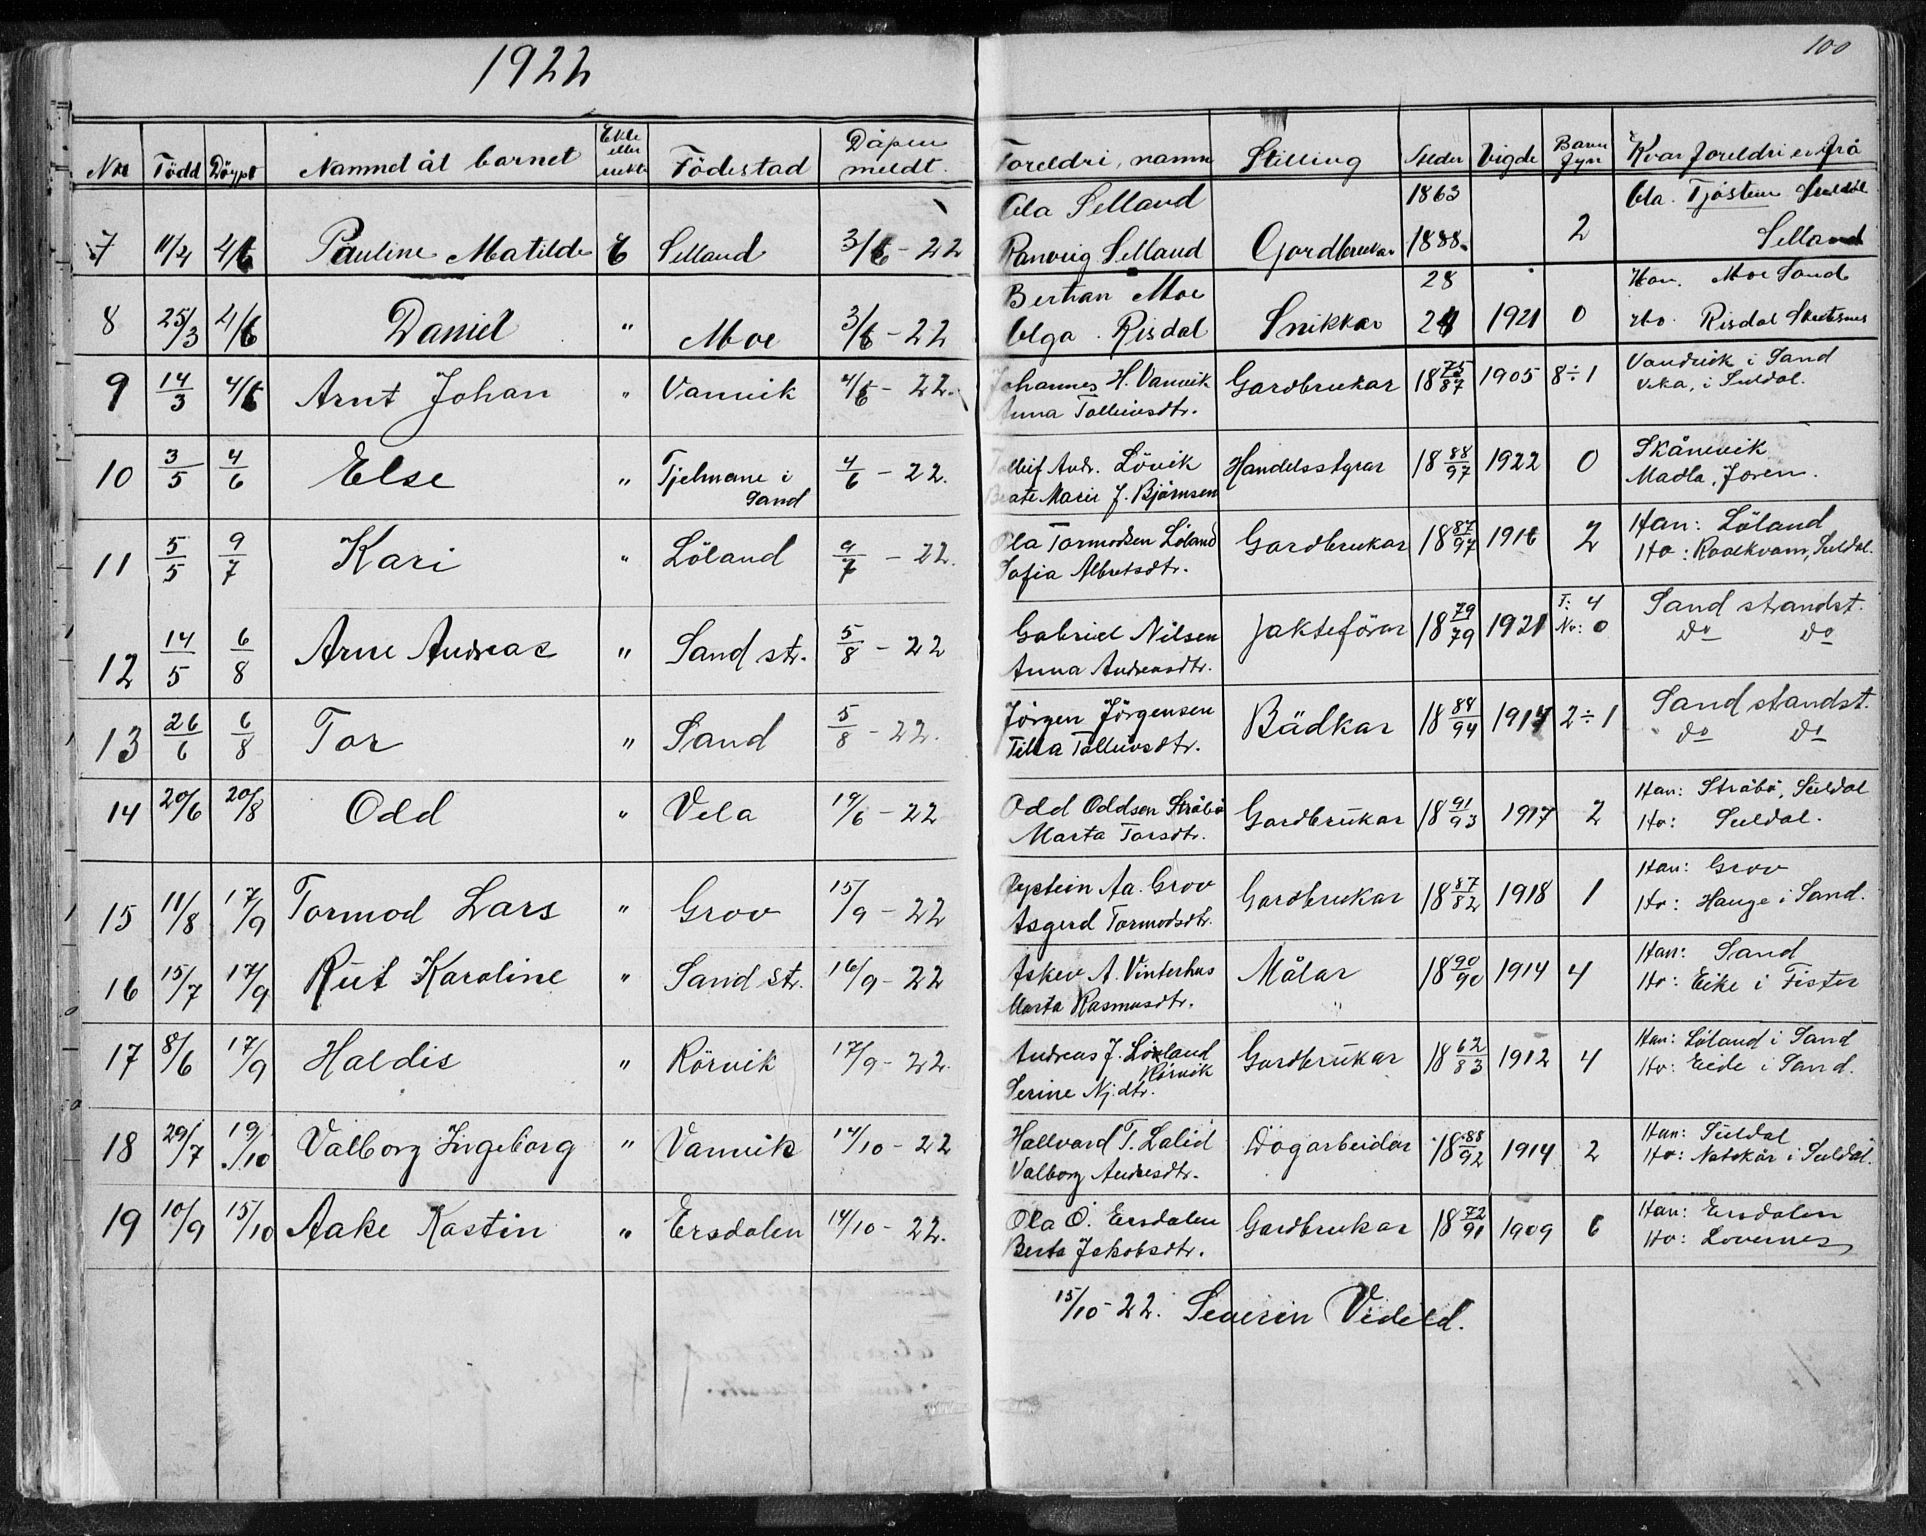 1922
100
Nr. Född Döypt Namnet åt barnet Ekte eller uekte Födestad Dåpen meldt. Foreldri, namn Stilling Alder Vigde Barn fyrr Kvar foreldri er frå
7 11/4 4/6 Pauline Matilde E Selland 3/6 - 22 Ola Selland Ranveig Selland Gardbrukar 1863 1888. 2 Ola. Tjöstem Suldal Selland
8 25/3 4/6 Daniel " Moe 3/6 - 22 Bertran Moe Olga. Risdal Snikkar 28 24 1921 0 Han. Moe Sand Ho. Risdal
9 14/3 4/6 Arnt Johan " Vanvik 4/6 - 22. Johannes H. Vanvik Anna Tolleivsdtr. Gardbrukar 18 75/87 1905 8÷1 Vandvik i Sand Veka, i Suldal.
10 3/5 4/6 Else " Tjelmane i Sand 4/6 - 22. Tolleif Andr. Lövik Beate Marie J. Björnsen Handelsstyrar 18 88/97 1922 0 Skånevik Madla, Jæren.
11 5/5 9/7 Kari " Löland 9/7 - 22. Ola Tormodsen Löland Sofia Albretsdtr. Gardbrukar 18 87/97 1916 2 Han: Löland Ho: Roalkvam, Suldal.
12 14/5 6/8 Arne Andreas " Sand str. 5/8 - 22 Gabriel Nilsen Anna Andreasdtr. Jakteförar 18 79/79 1921 F: 4 No: 0 Sand strandst. do do
13 26/6 6/8 Tor " Sand 5/8 - 22. Jörgen Jörgensen Tilla Tolleivsdtr. Bädkar 18 88/94 1914 2÷1 Sand standst. do do
14 20/6 20/8 Odd " Vela 19/6 - 22 Odd Oddsen Stråbö Marta Torsdtr. Gardbrukar 18 91/93 1917 2 Han: Stråbö, Suldal Ho: Suldal.
15 11/8 17/9 Tormod Lars " Grov 15/9 - 22 Öystein Aa. Grov Asgerd Tormodsdtr. Gardbrukar 18 87/82 1918 1 Han: Grov Ho: Hauge i Sand.
16 15/7 17/9 Rut Karoline " Sand str. 16/9 - 22 Askev A. Vinterhus Marta Rasmusdtr. Målar 18 90/90 1914 4 Han: Sand Ho: Eike i Fister
17 8/6 17/9 Haldis " Rörvik 17/9 - 22. Andreas J. Löland Rörvik Serine Nj.dtr. Gardbrukar 18 62/83 1912 4 Han: Löland i Sand Ho: Eide i Sand.
18 29/7 19/10 Valborg Ingeborg " Vanvik 14/10 - 22 Hallvard T. Lalid Valborg Andresdtr. Dagarbeidar 18 88/92 1914 2 Han: Suldal Ho: Natskår i Suldal.
19 10/9 15/10 Aake Kastin " Ersdalen 14/10 - 22. Ola O. Ersdalen Berta Jakobsdtr. Gardbrukar 18 72/91 1909 6 Han: Ersdalen Ho: Lovernes
15/10-22. Severin Videld.